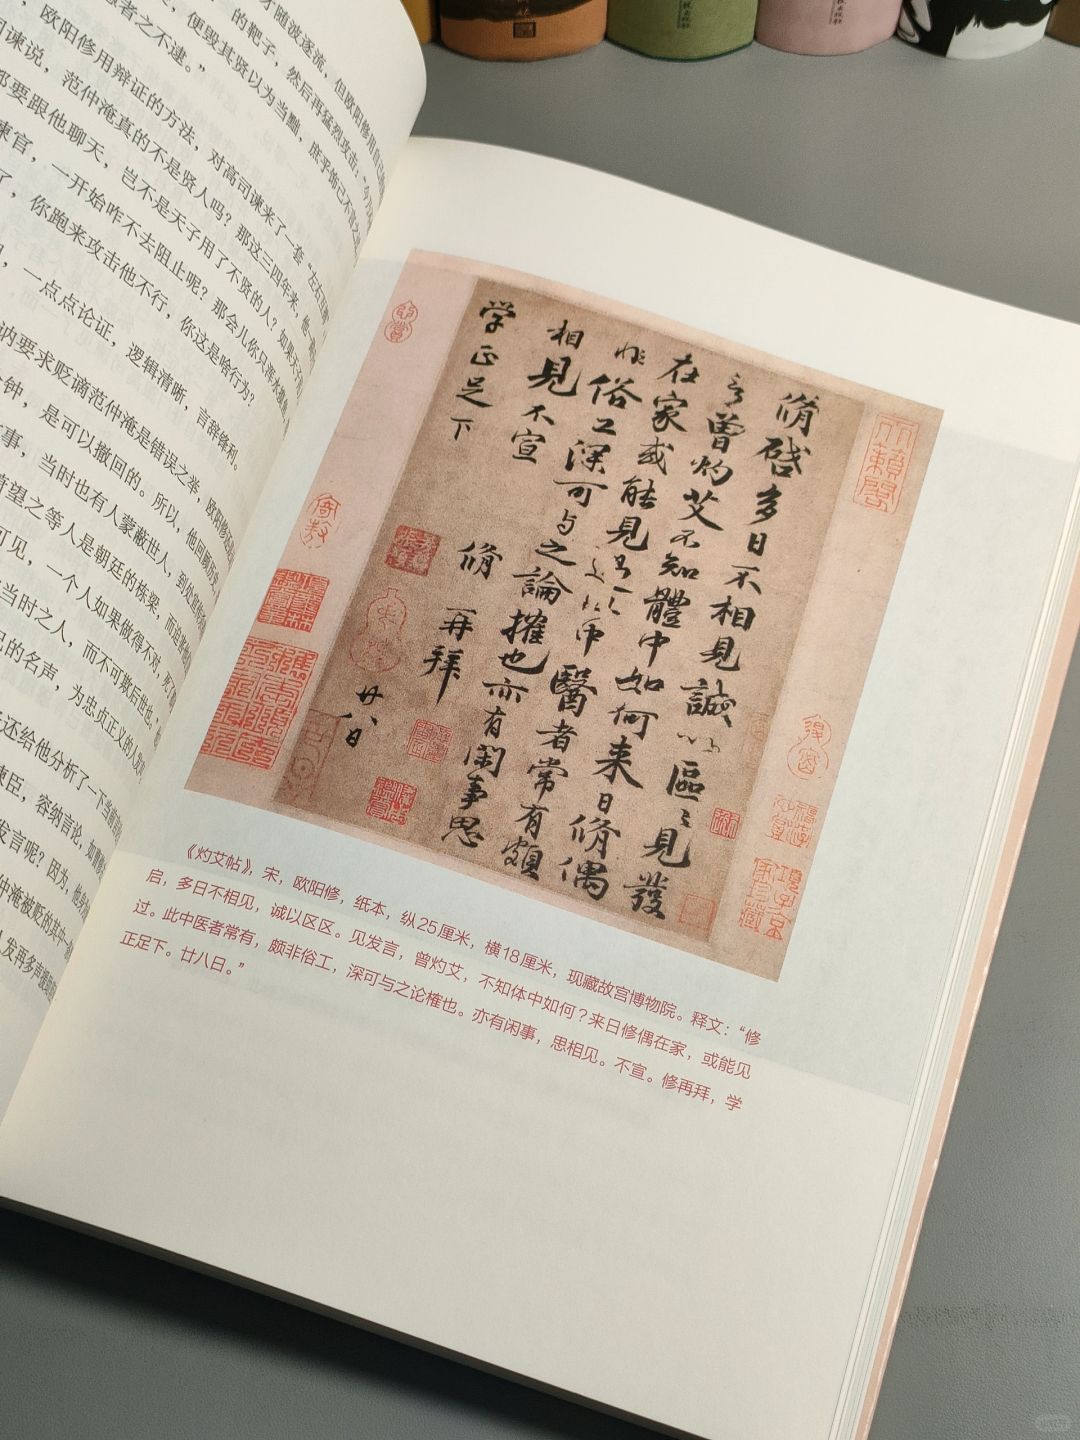 才随波逐流，但欧阳修用自己
的靶子，然后再猛烈攻击：“今乃
，便毁其贤以为当黜，庶乎饰己不言之
愚者之不逮。”
，欧阳修用辩证的方法，对高司谏来了一套“左右互
司谏说，范仲淹真的不是贤人吗？那这三四年来，他
都要跟他聊天，岂不是天子用了不贤的人？如果
谏官，一开始咋不去阻止呢？那会儿你只
了，你跑来攻击他不行，你这是啥行为？
，一点点论证，逻辑清晰，言辞够利。
讷要求贬谪范仲淹是错误之举，欧阳修
钟，是可以撤回的。所以，他回顾历史
事，当时也有人蒙蔽世人，到处宣
萧望之等人是朝廷的栋梁，而
可见，一个人如果做得不对，
当时之人，而不可欺后世也。
己的名声，为忠贞正义的人
还给他分析了一下当前
谏臣，容纳言论，如
发言呢？因为，他身
仲淹被贬的其中一
人发再多声
脩啓多日不相見誠以區區見發
言曾灼艾不知體中如何来日脩偶
在家或能見過此中醫者常有頗
非俗工深可与之論搉也亦有閑事思
相見不宣 脩再拜
学正足下 廿八日
《灼艾帖》，宋，欧阳修，纸本，纵25厘米，横18厘米，现藏故宫博物院。释文：“修
启，多日不相见，诚以区区。见发言，曾灼艾，不知体中如何？来日修偶在家，或能见
过。此中医者常有，颇非俗工，深可与之论榷也。亦有闲事，思相见。不宣。修再拜，学
正足下。廿八日。”